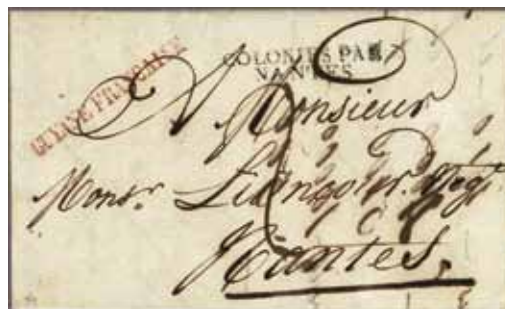 GUYANE FRANÇAISE
COLONIES PAR
NANTES
A Monsieur
Monsr
Nantes.